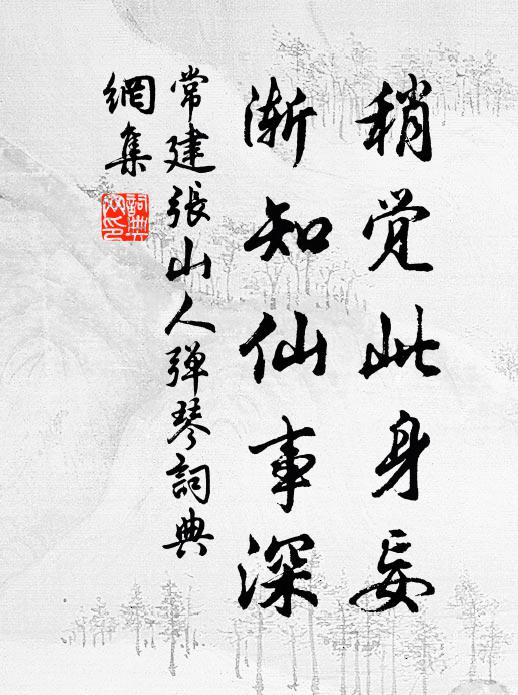 稍觉此身妄
渐知仙事深
常建張山人弹琴詞典
網集
詞典
网印